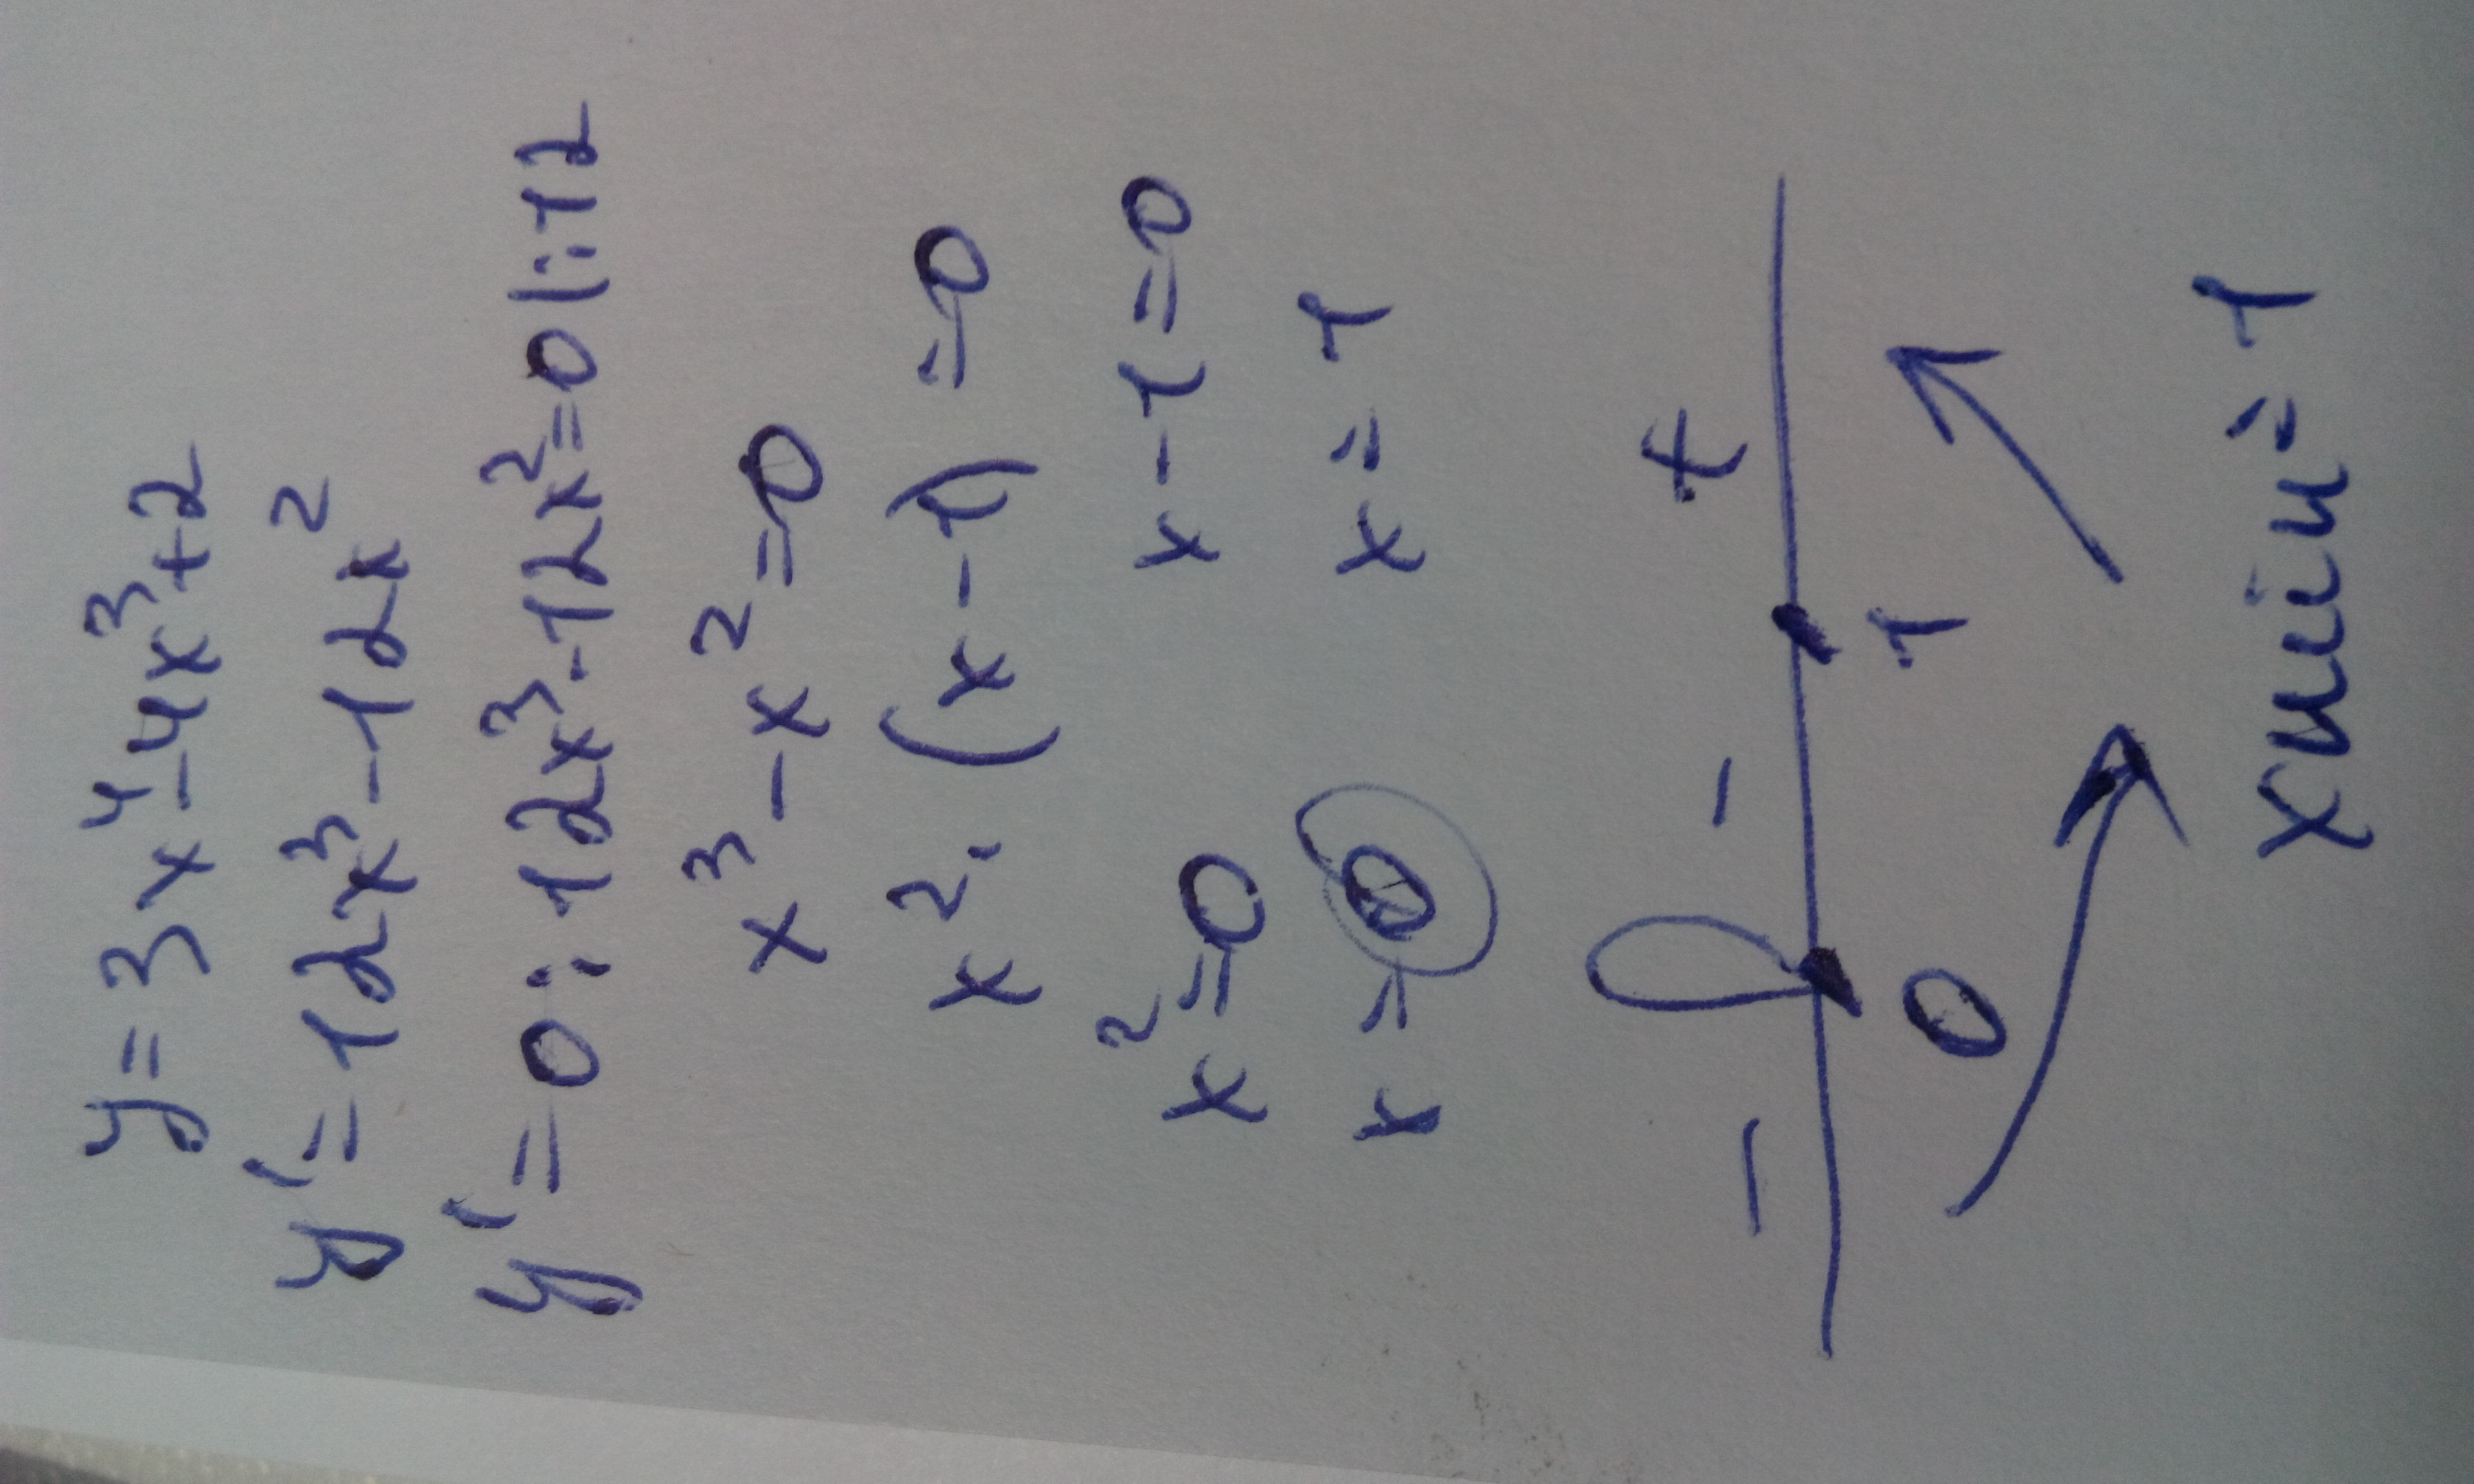 y = 3x⁴ - 4x³ + 2
y' = 12x³ - 12x²
y' = 0: 12x³ - 12x² = 0 |:12
x³ - x² = 0
x² · (x - 1) = 0
x² = 0 x - 1 = 0
x = 0 x = 1
- - +
0 1
xmin = 1